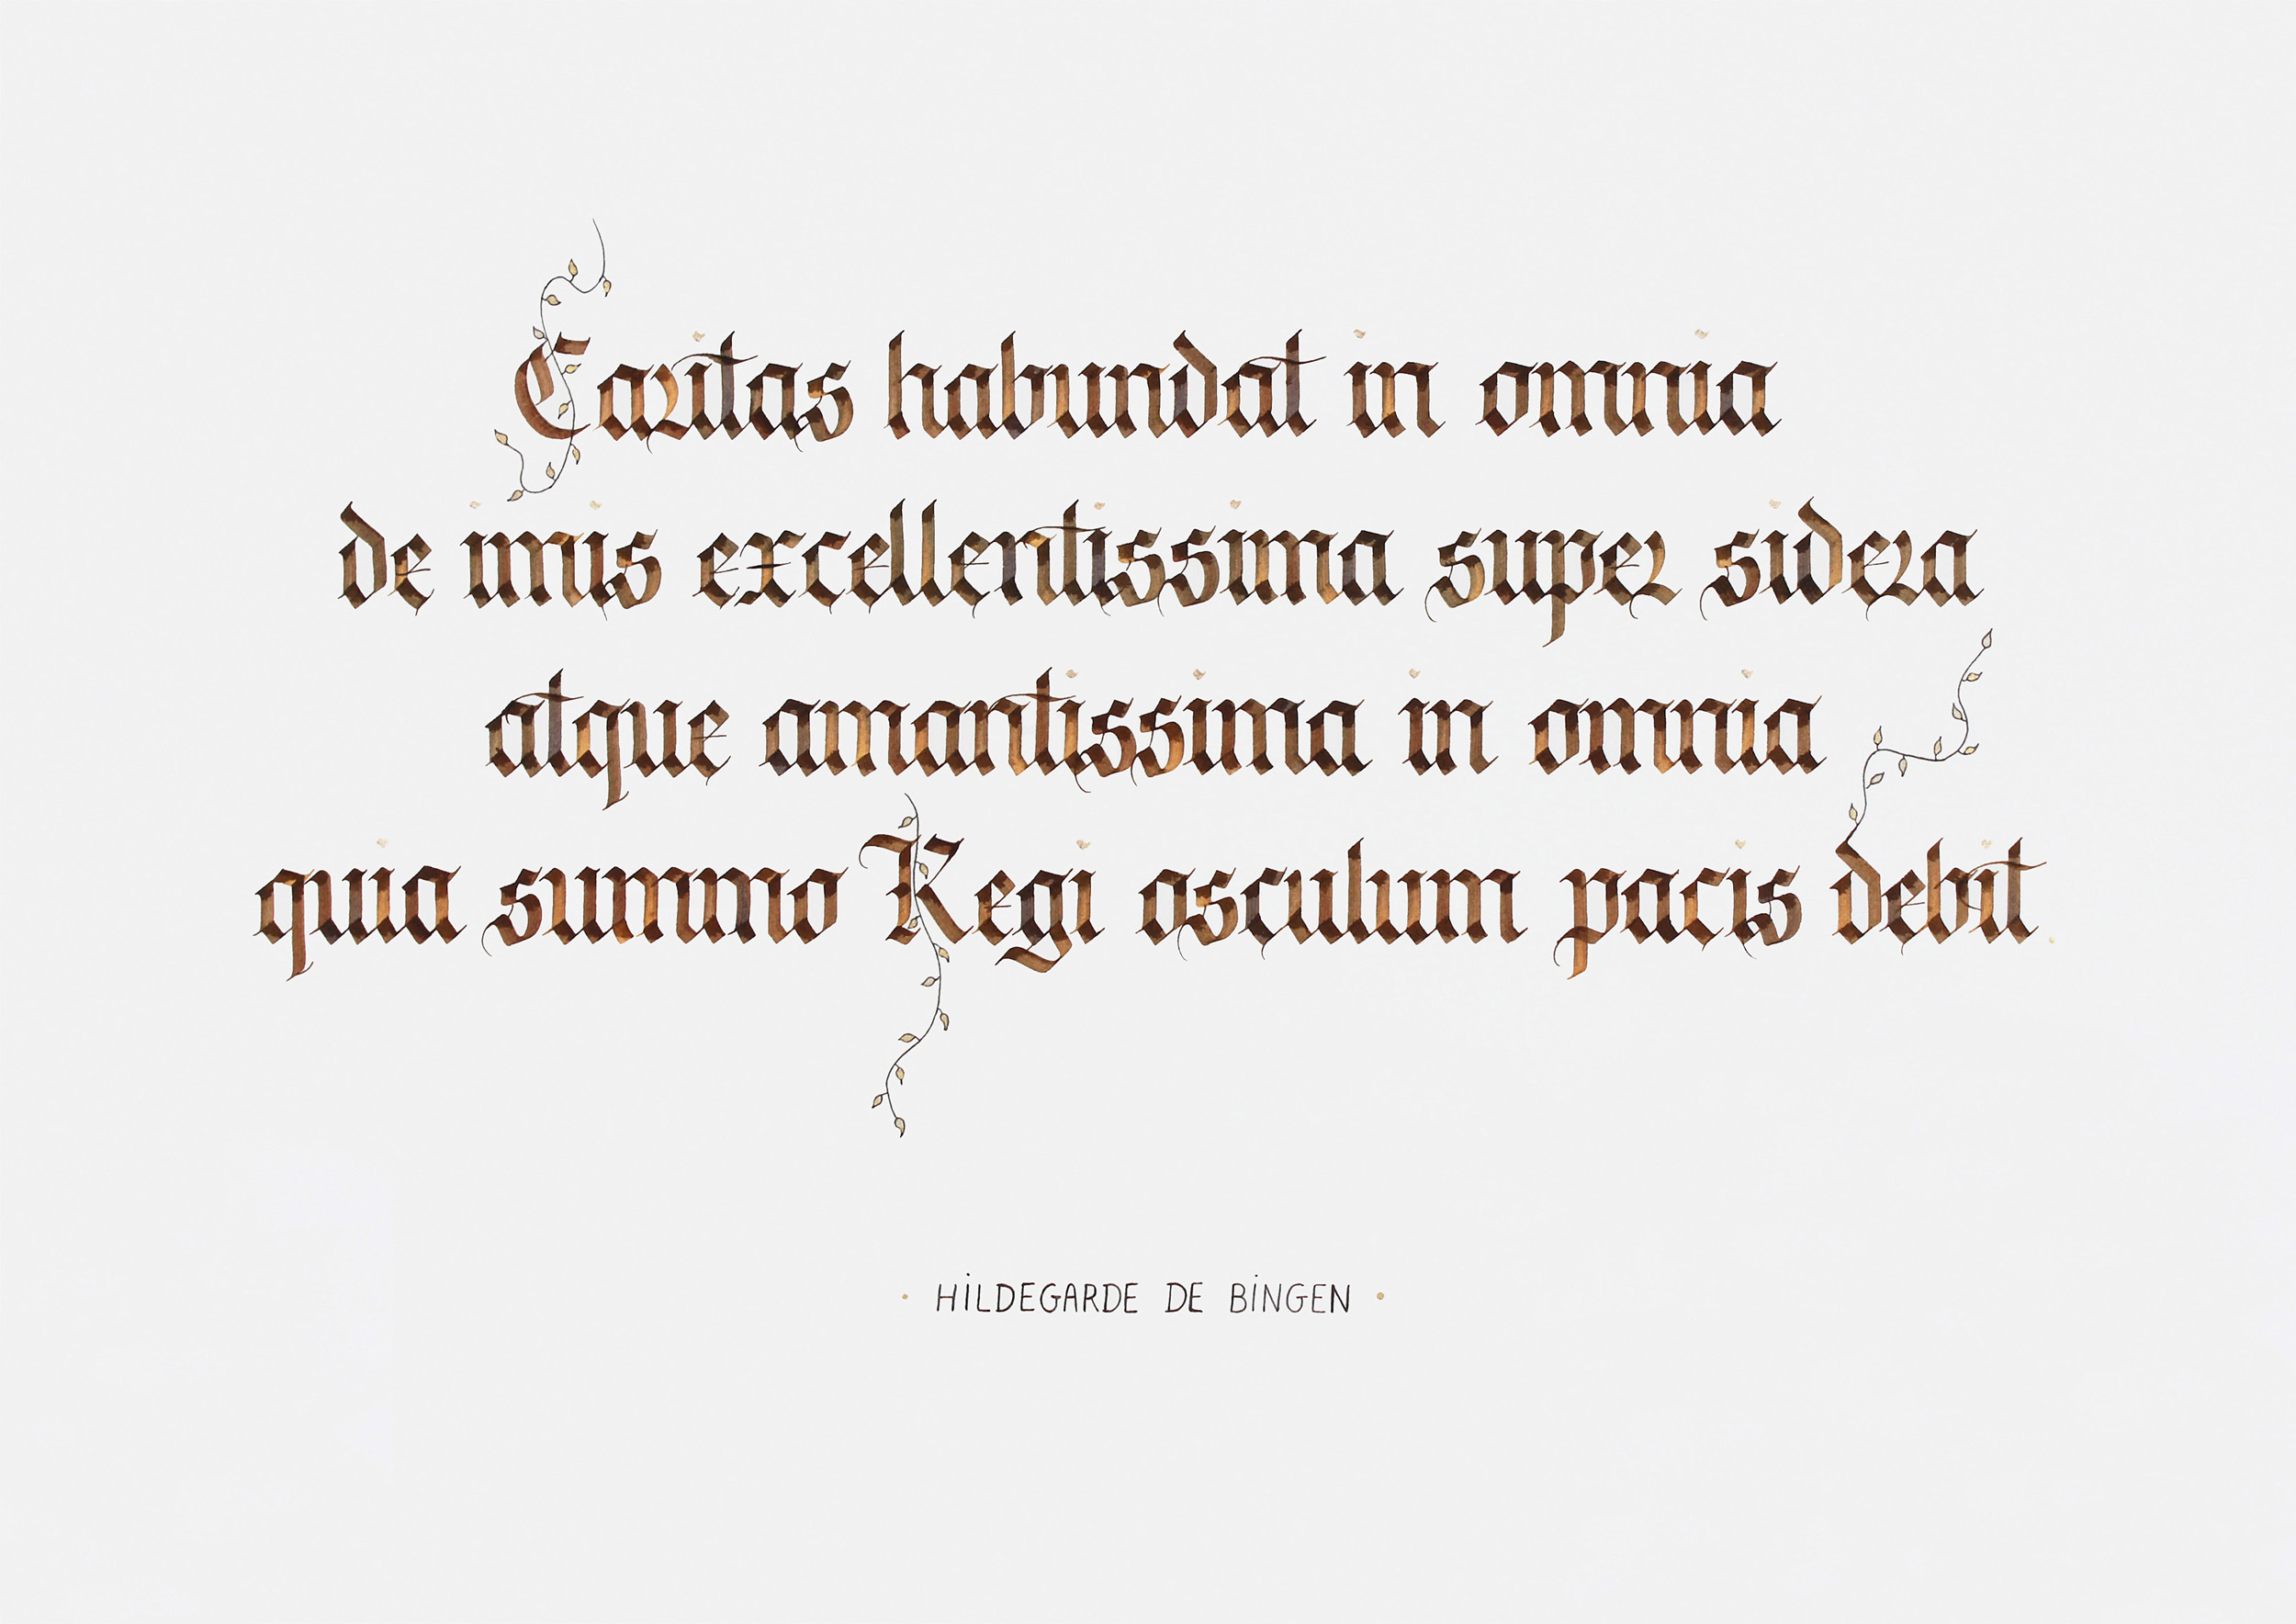 Caritas habundat in omnia
de imis excellentissima super sidera
atque amantissima in omnia
quia summo Regi osculum pacis debit.
· HILDEGARDE DE BINGEN ·